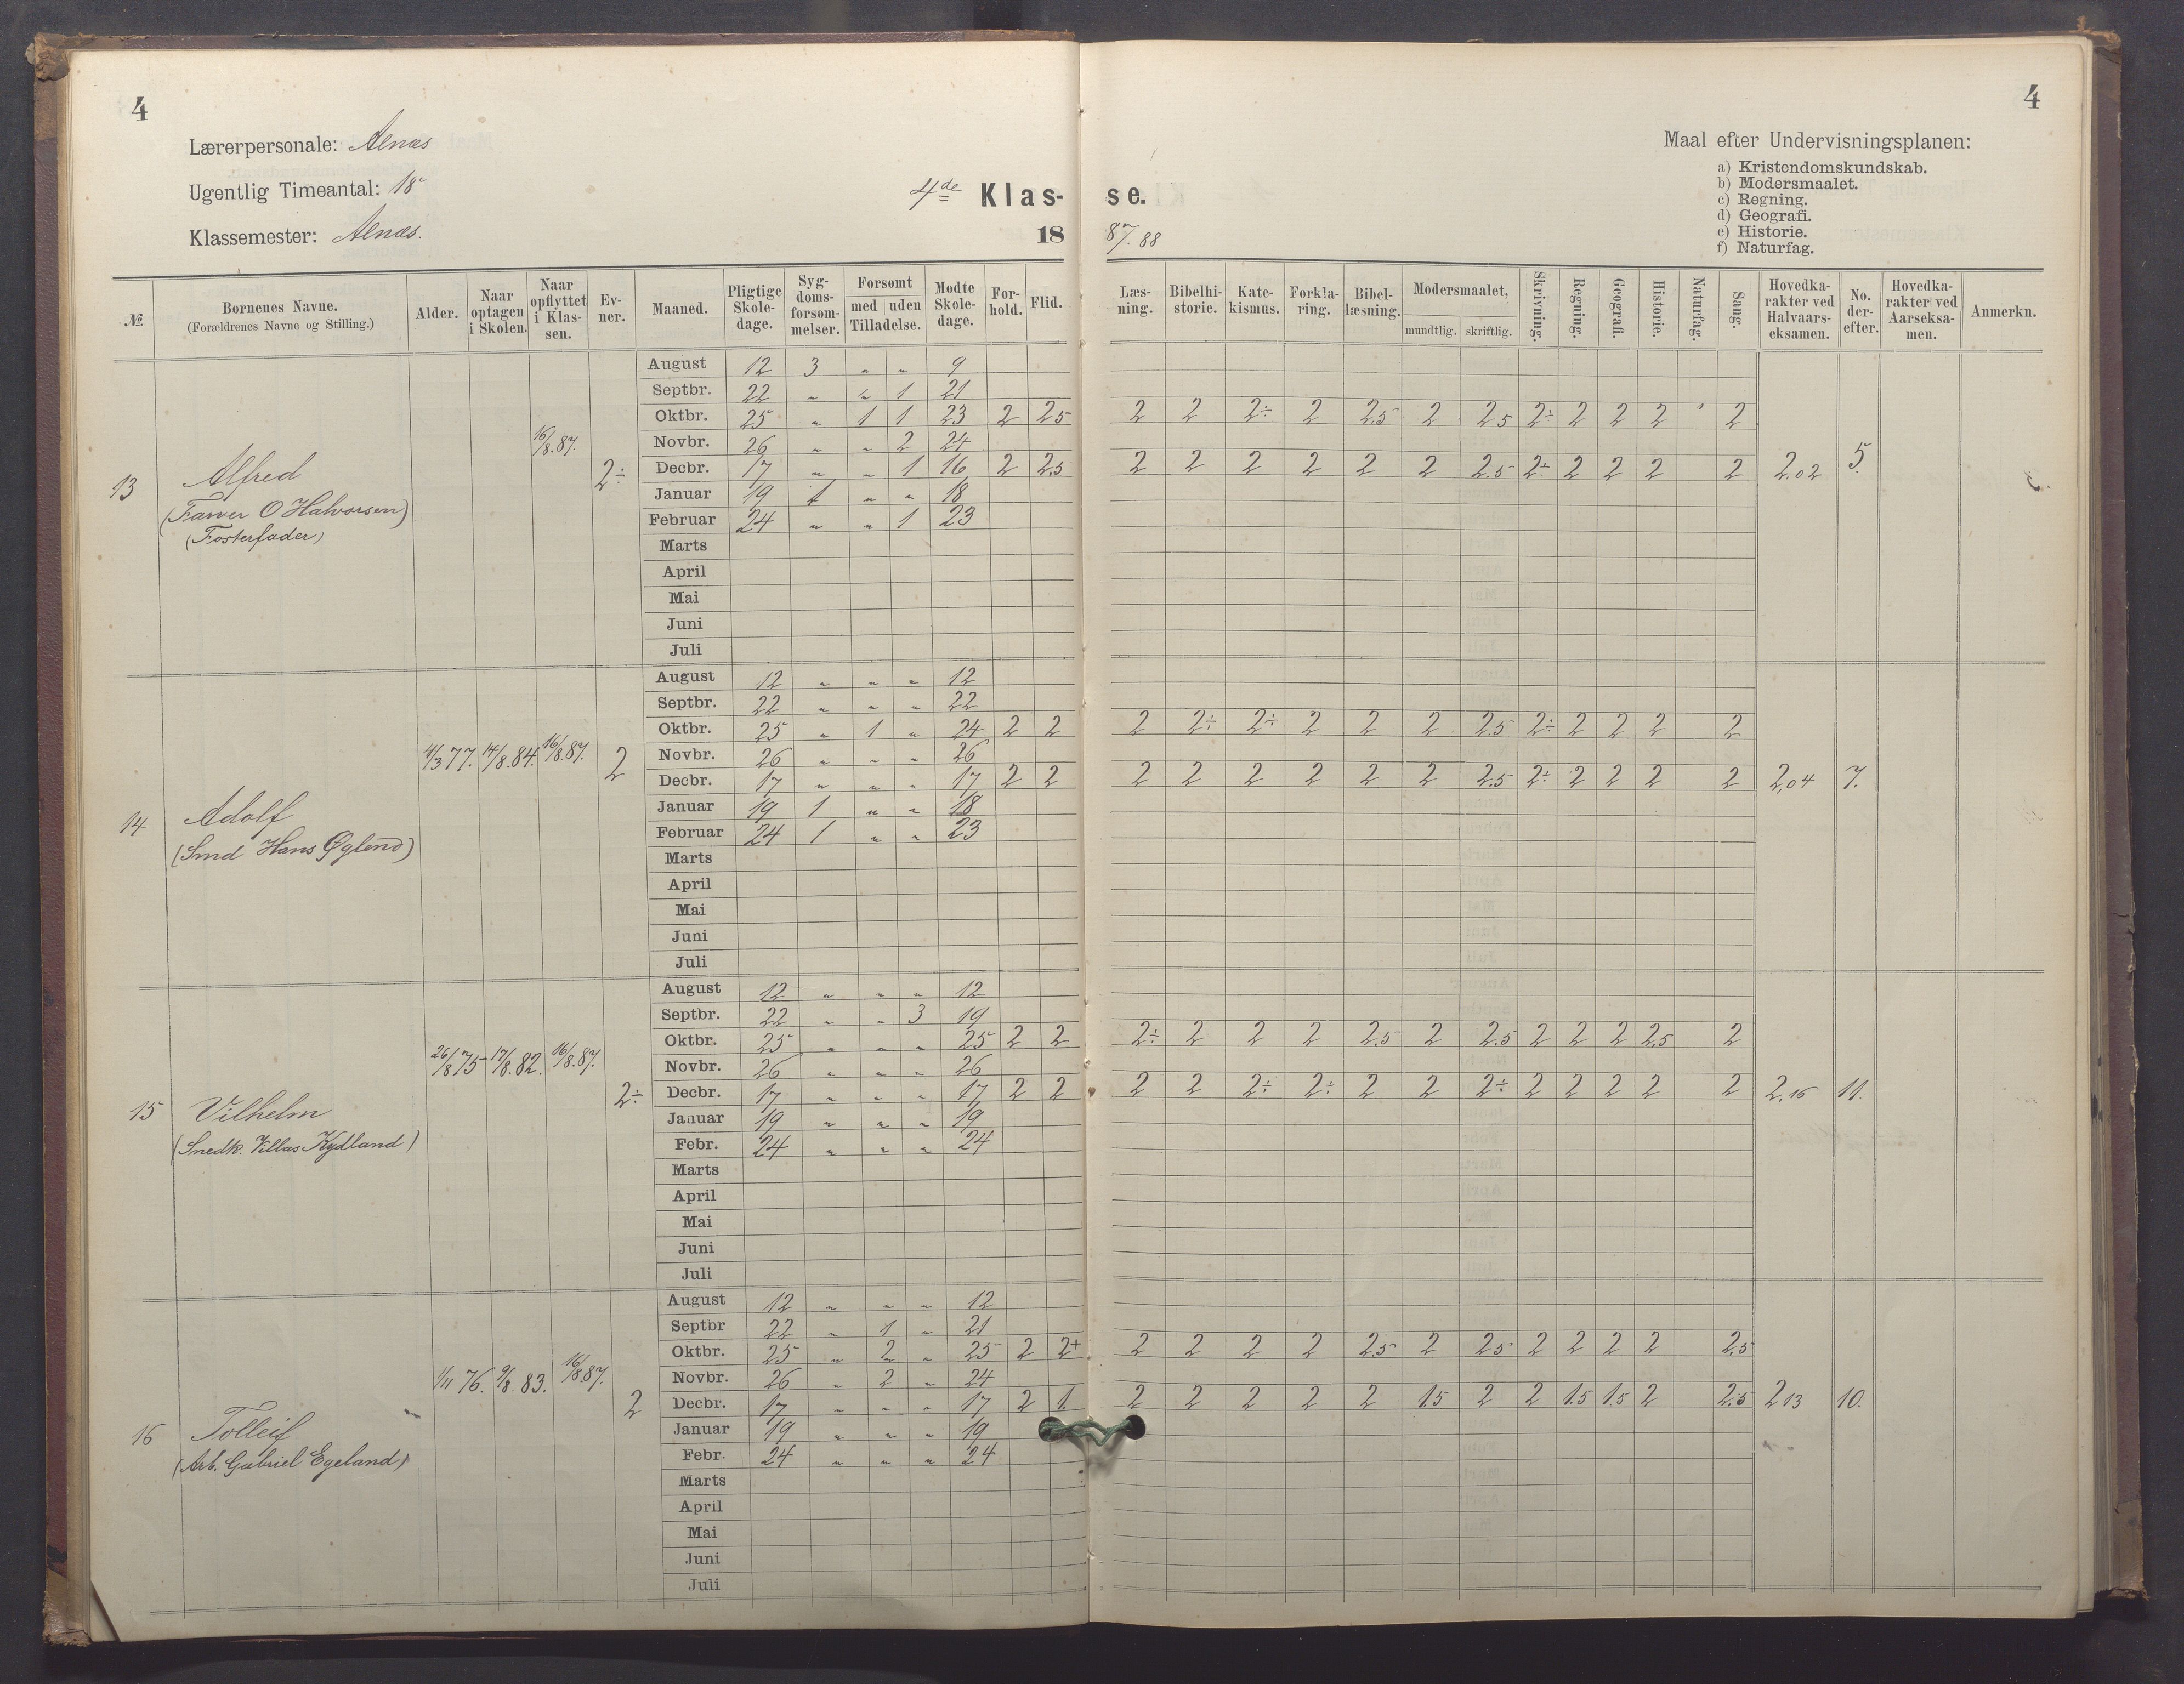 4
Lærerpersonale: Aenæs
Ugentlig Timeantal: 18
Klassemester: Aenæs.
4de Klas-
18
se.
87/88
4
Maal efter Undervisningsplanen:
a) Kristendomskundskab.
b) Modersmaalet.
c) Regning.
d) Geografi.
e) Historie.
f) Naturfag.
№. Børnenes Navne. (Forældrenes Navne og Stilling.) Alder. Naar optagen i Skolen. Naar opflyttet i Klas-sen. Ev-ner. Maaned. Pligtige Skole-dage. Syg-doms-forsøm-melser. Forsømt med uden Tilladelse. Mødte Skole-dage. For-hold. Flid. Læs-ning. Bibelhi-storie. Kate-kismus. Forkla-ring. Bibel-læsning. Modersmaalet, mundtlig. skriftlig. Skrivning. Regning. Geografi. Historie. Naturfag. Sang. Hovedka-rakter ved Halvaars-eksamen. No. der-efter. Hovedka-rakter ved Aarseksa-men. Anmerkn.
13 Alfred
(Farver O Halvorsen)
(Fosterfader)
16/8.87. 2÷
August 12 3 " " 9
Septbr. 22 " " 1 21
Oktbr. 25 " 1 1 23 2 2.5 2 2 2÷ 2 2.5 2 2.5 2÷ 2 2 2 ' 2
Novbr. 26 " " 2 24
Decbr. 17 " " 1 16 2 2.5 2 2 2 2 2 2 2.5 2÷ 2 2 2 2 2.02 5.
Januar 19 1 " " 18
Februar 24 " " 1 23
Marts
April
Mai
Juni
Juli
14 Adolf
(Smd Hans Øglend)
4/3 77. 14/8.84. 16/8.87. 2
August 12 " " " 12
Septbr. 22 " " " 22
Oktbr. 25 " 1 " 24 2 2 2 2÷ 2÷ 2 2 2 2.5 2÷ 2 2 2 2
Novbr. 26 " " " 26
Decbr. 17 " " " 17 2 2 2 2 2 2 2 2 2.5 2÷ 2 2 2 2 2,04 7.
Januar 19 1 " " 18
Februar 24 1 " " 23
Marts
April
Mai
Juni
Juli
15 Vilhelm
(Snedk. Villas Kydland)
26/8 75 17/8.82. 16/8.87. 2÷
August 12 " " " 12
Septbr. 22 " " 3 19
Oktbr. 25 " " " 25 2 2 2÷ 2 2 2 2.5 2 2.5 2 2 2 2.5 2
Novbr. 26 " " " 26
Decbr. 17 " " " 17 2 2 2 2 2÷ 2÷ 2 2 2÷ 2 2 2 2 2 2,16 11.
Januar 19 " " " 19
Febr. 24 " " " 24
Marts
April
Mai
Juni
Juli
16 Tolleif
(Arb. Gabriel Egeland)
1/11 76. 9/8.83. 16/8.87. 2
August 12 " " " 12
Septbr 22 " 1 " 21
Oktbr. 25 " 2 " 25 2 2+ 2 2 2 2 2.5 2 2.5 2 2 2 2 2.5
Novbr. 26 " 2 " 24
Decbr. 17 " " " 17 2 1. 2 2 2 2 2 1.5 2 2 1.5 1.5 2 2.5 2 13 10.
Januar 19 " " " 19
Febr. 24 " " " 24
Marts
April
Mai
Juni
Juli